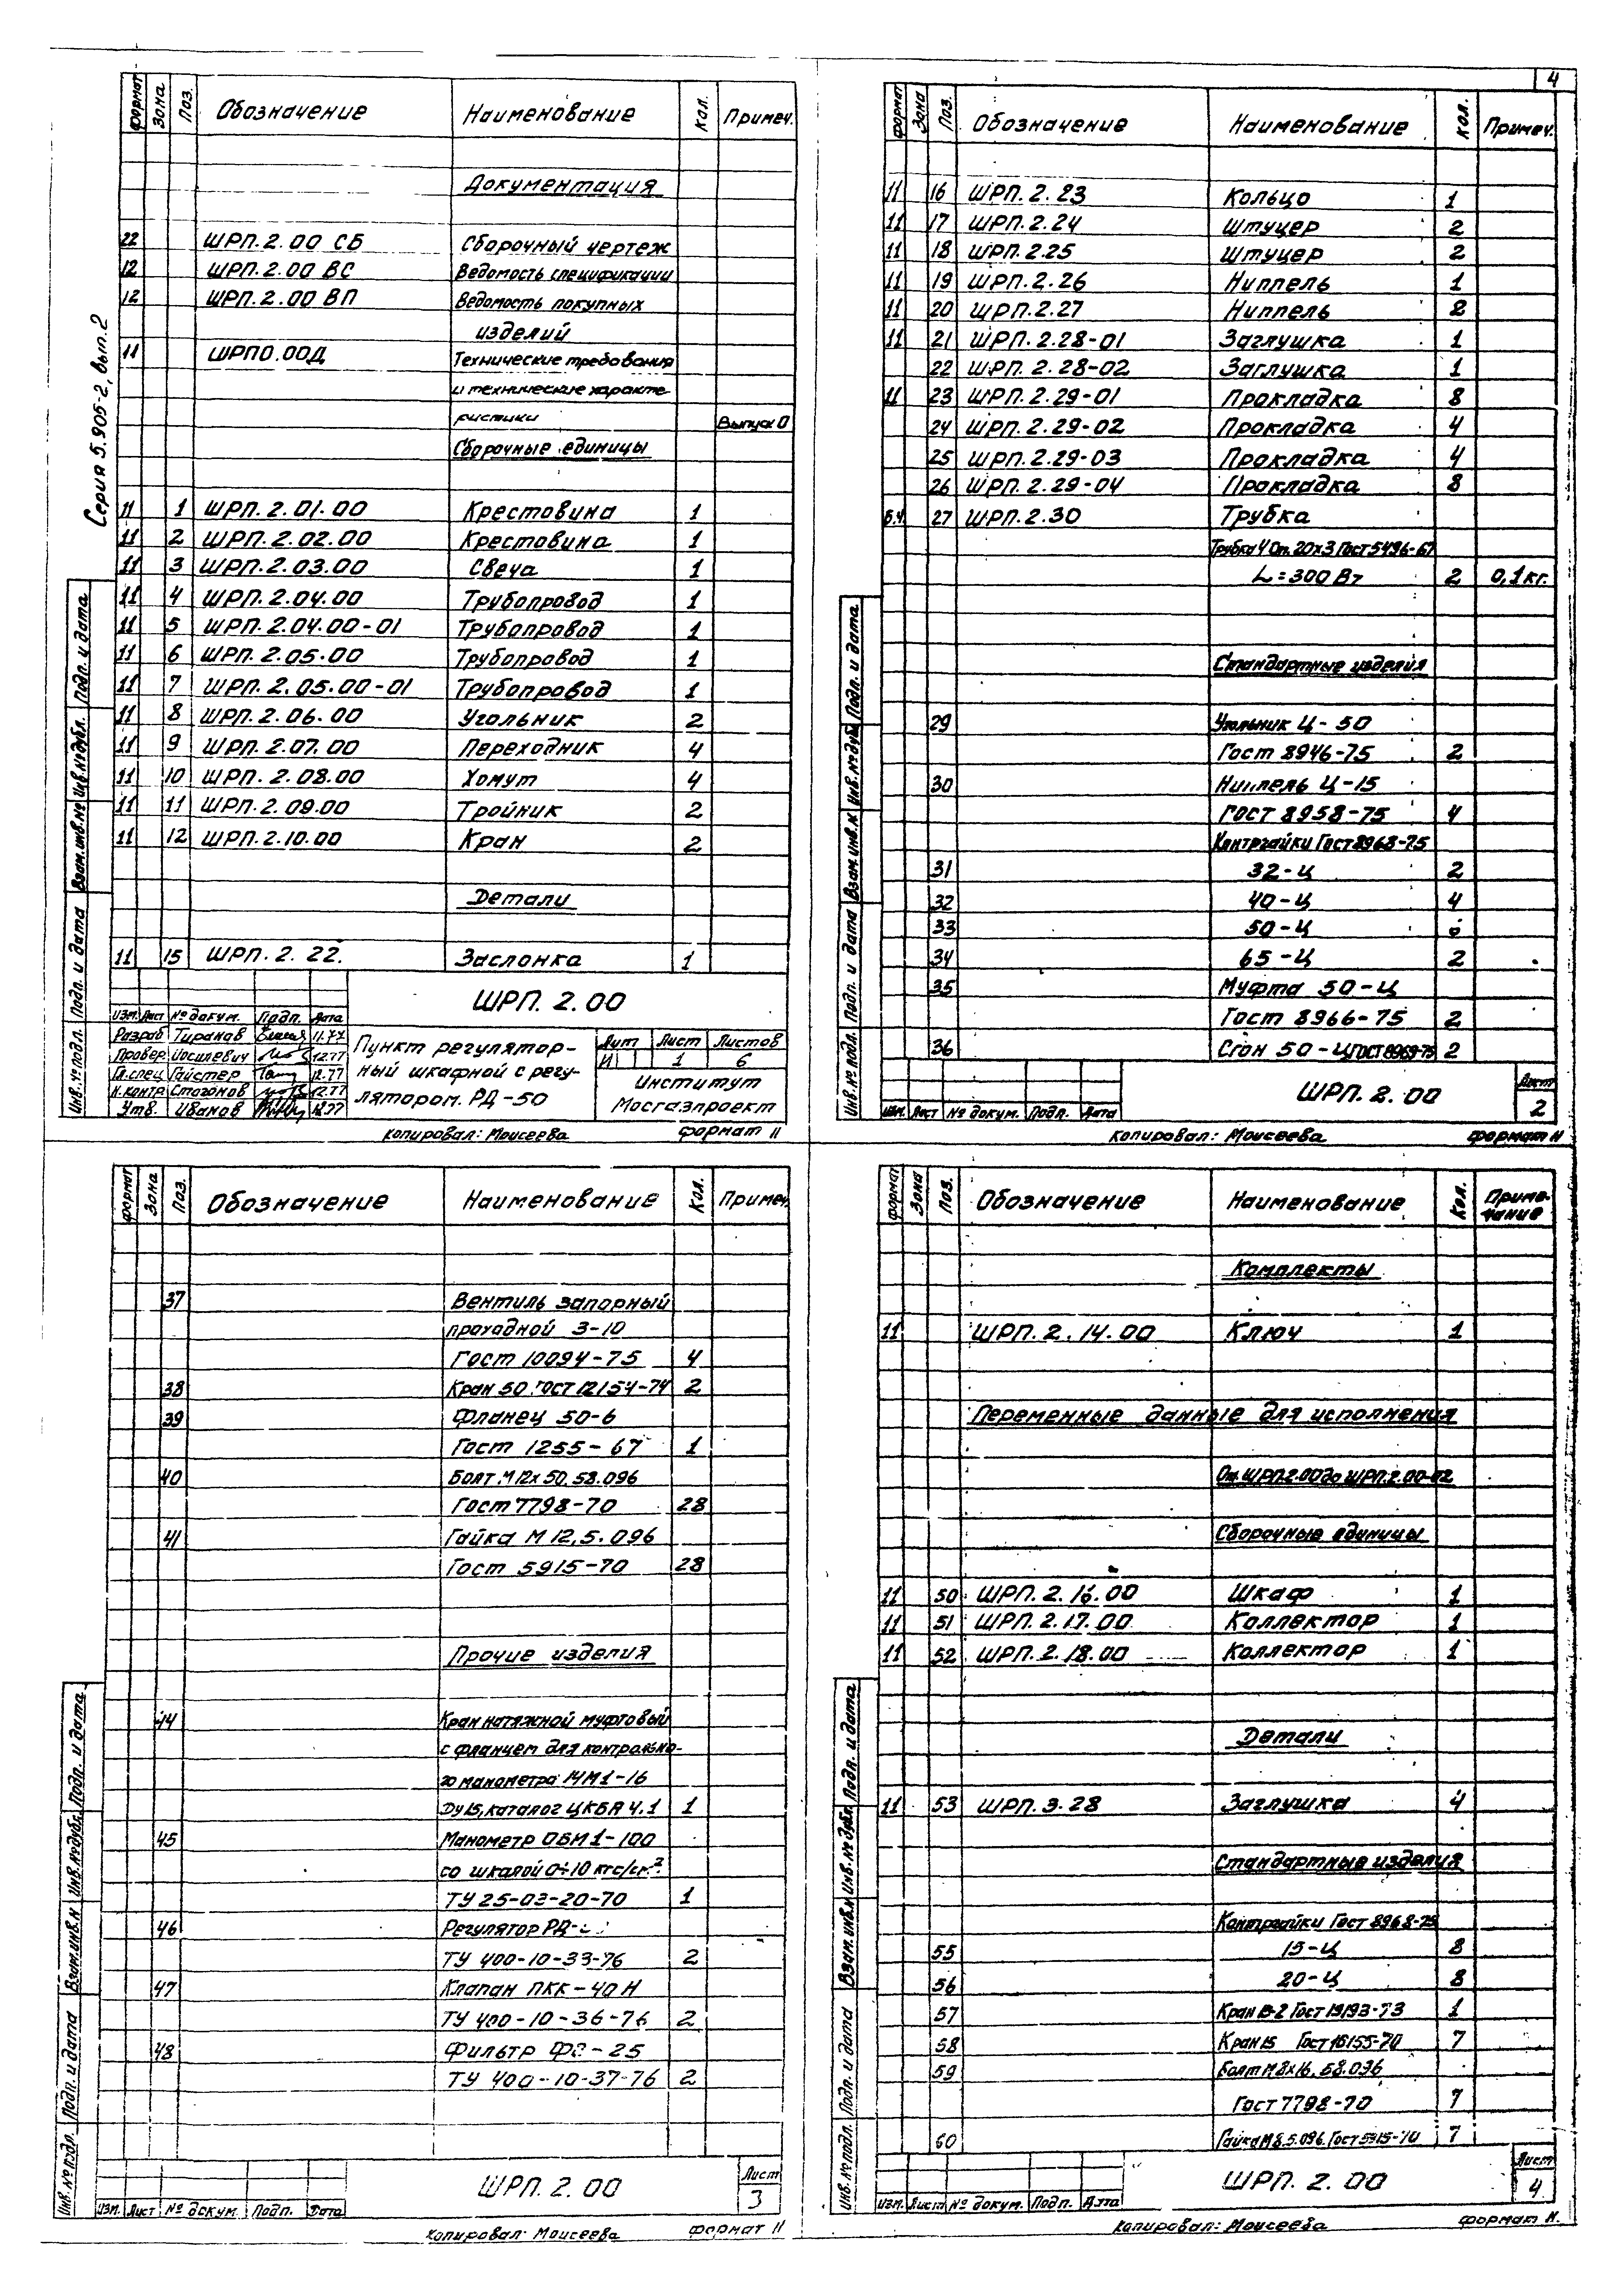 4
Серия 5.905-2, вып.2
формат Зона Поз. Обозначение Наименование Кол. Примеч.
Документация
22 ШРП.2.00 СБ Сборочный чертеж
12 ШРП.2.00 ВС Ведомость спецификации
12 ШРП.2.00 ВП Ведомость покупных
изделий
11 ШРП0.00Д Технические требования
и технические характе-
ристики Выпуск 0
Сборочные единицы
11 1 ШРП.2.01.00 Крестовина 1
11 2 ШРП.2.02.00 Крестовина 1
11 3 ШРП.2.03.00 Свеча 1
11 4 ШРП.2.04.00 Трубопровод 1
11 5 ШРП.2.04.00-01 Трубопровод 1
11 6 ШРП.2.05.00 Трубопровод 1
11 7 ШРП.2.05.00-01 Трубопровод 1
11 8 ШРП.2.06.00 Угольник 2
11 9 ШРП.2.07.00 Переходник 4
11 10 ШРП.2.08.00 Хомут 4
11 11 ШРП.2.09.00 Тройник 2
11 12 ШРП.2.10.00 Кран 2
Детали
11 15 ШРП.2.22. Заслонка 1
Инв.№ подл. Подп. и дата Взам.инв.№ Инв.№ дубл. Подп. и дата
ШРП.2.00
Изм. Лист № докум. Подп. Дата
Разраб Тиранов 11.77
Провер Иосилевич 12.77
Гл.спец Гайстер 12.77
Н.контр Стогонов 12.77
Утв. Иванов 12.77
Пункт регулятор-
ный шкафной с регу-
лятором РД-50
Лит Лист Листов
И 1 6
Институт
Мосгазпроект
Копировал: Моисеева формат 11
формат Зона Поз. Обозначение Наименование Кол. Примеч.
11 16 ШРП.2.23 Кольцо 1
11 17 ШРП.2.24 Штуцер 2
11 18 ШРП.2.25 Штуцер 2
11 19 ШРП.2.26 Ниппель 1
11 20 ШРП.2.27 Ниппель 2
11 21 ШРП.2.28-01 Заглушка 1
22 ШРП.2.28-02 Заглушка 1
11 23 ШРП.2.29-01 Прокладка 8
24 ШРП.2.29-02 Прокладка 4
25 ШРП.2.29-03 Прокладка 4
26 ШРП.2.29-04 Прокладка 8
Б.ч. 27 ШРП.2.30 Трубка
Трубка 4 Оп. 20х3 Гост 5496-67
L=300 Вт 2 0,1кг.
Стандартные изделия
29 Угольник Ц-50
Гост 8946-75 2
30 Ниппель Ц-15
Гост 8958-75 4
Контргайки Гост 8968-75
31 32-Ц 2
32 40-Ц 4
33 50-Ц
34 65-Ц 2
35 Муфта 50-Ц
Гост 8966-75 2
36 Сгон 50-Ц Гост 8969-75 2
Инв.№ подл. Подп. и дата Взам.инв.№ Инв.№ дубл. Подп. и дата
Изм. Лист № докум. Подп. Дата
ШРП.2.00
Лист
2
Копировал: Моисеева формат 11
формат Зона Поз. Обозначение Наименование Кол. Примеч.
37 Вентиль запорный
проходной 3-10
Гост 10094-75 4
38 Кран 50 Гост 12154-74 2
39 Фланец 50-6
Гост 1255-67 1
40 Болт М12х50.58.096
Гост 7798-70 28
41 Гайка М12,5.096
Гост 5915-70 28
Прочие изделия
44 Кран натяжной муфтовый
с фланцем для контрольно-
го манометра 14М1-16
Ду15, каталог ЦКБА ч.1 1
45 Манометр ОБМ1-100
со шкалой 0÷10 кгс/см²
ТУ 25-03-20-70 1
46 Регулятор РД-
ТУ 400-10-33-76 2
47 Клапан ПКК-40Н
ТУ 400-10-36-76 2
48 Фильтр -25
ТУ 400-10-37-76 2
Инв.№ подл. Подп. и дата Взам.инв.№ Инв.№ дубл. Подп. и дата
Изм. Лист № докум. Подп. Дата
ШРП.2.00
Лист
3
Копировал: Моисеева формат 11
формат Зона Поз. Обозначение Наименование Кол. Приме-
чание
Комплекты
11 ШРП.2.14.00 Ключ 1
Переменные данные для исполнения
От ШРП.2.00 до ШРП.2.00-02
Сборочные единицы
11 50 ШРП.2.16.00 Шкаф 1
11 51 ШРП.2.17.00 Коллектор 1
11 52 ШРП.2.18.00 Коллектор 1
Детали
11 53 ШРП.3.28 Заглушка 4
Стандартные изделия
Контргайки Гост 8968-75
55 15-Ц 8
56 20-Ц 8
57 Кран Гост 19193-73 1
58 Кран 15 7
59 Болт М8х16.58.096
Гост 7798-70 7
60 Гайка М8.5.096.Гост 5915-70 7
Инв.№ подл. Подп. и дата Взам.инв.№ Инв.№ дубл. Подп. и дата
Изм. Лист № докум. Подп. Дата
ШРП.2.00
Лист
4
Копировал: Моисеева формат 11.